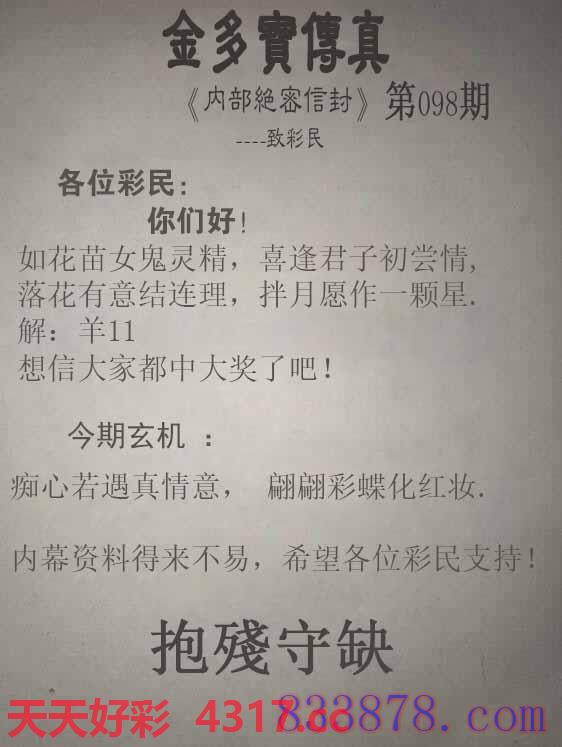 金多寶傳真
《内部絕密信封》第098期
----致彩民
各位彩民:
你们好!
如花苗女鬼灵精，喜逢君子初尝情,
落花有意结连理，拌月愿作一颗星.
解：羊11
想信大家都中大奖了吧！
今期玄机 ：
痴心若遇真情意， 翩翩彩蝶化红妆.
内幕资料得来不易，希望各位彩民支持！
抱殘守缺
天天好彩 4317.cc
833878.com